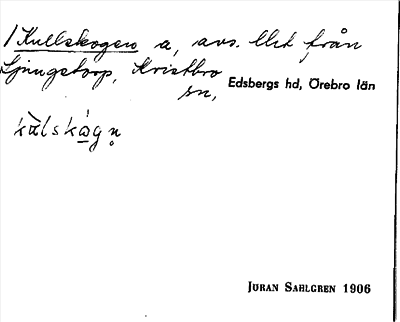 / Kullskogen a, avs. till från
Ljungstorp, Kristbro
sn, Edsbergs hd, Örebro län
kalskogn
JÖRAN SAHLGREN 1906